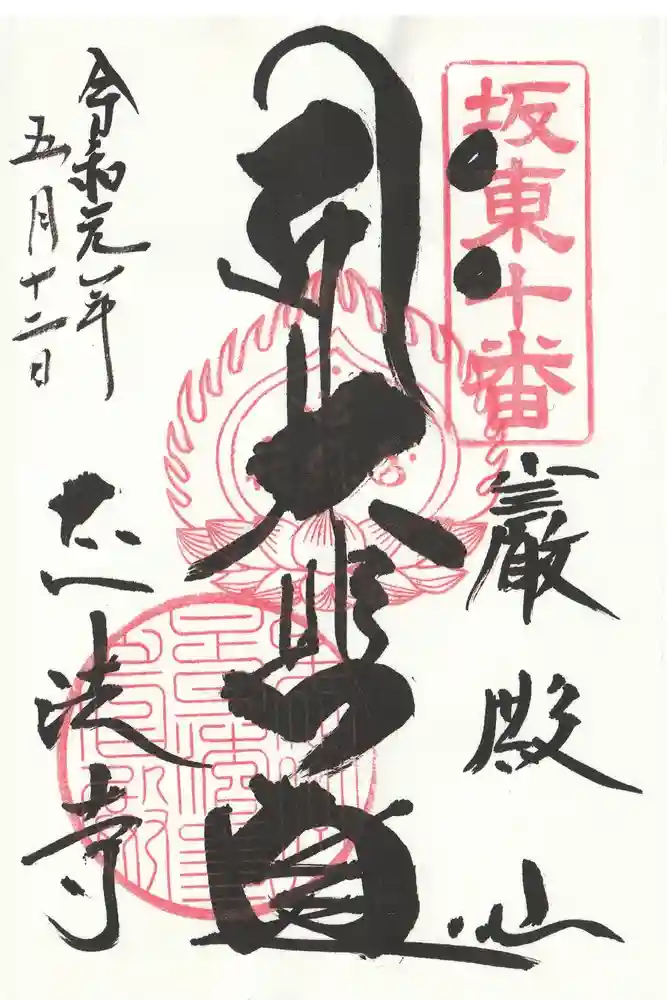 坂東十番
巌殿山
大悲閣
正法寺
令和元年
五月十二日